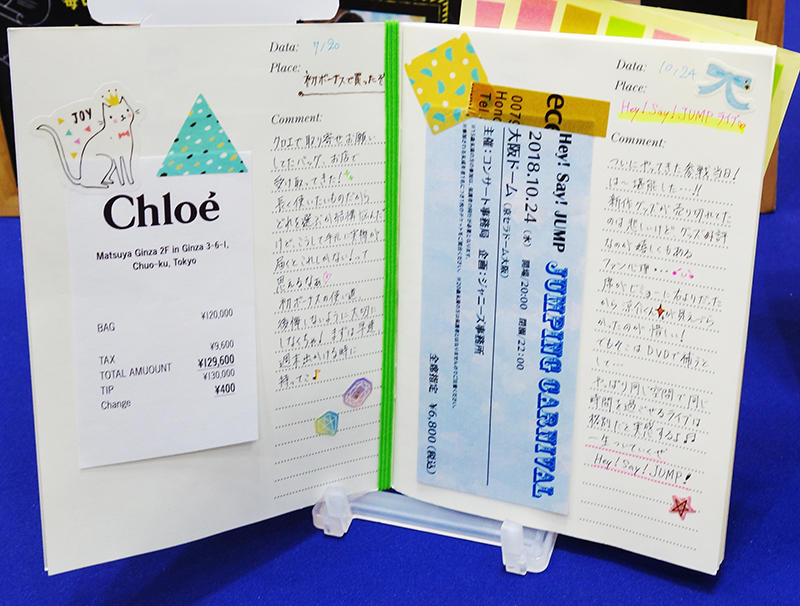 Data: 7/20
Place: 初ボーナスで買ったぞ
Comment:
クロエで取り寄せお願い
してたバッグ、お店で
受け取ってきた!
長く使いたいものだから
どれを選ぶか結構悩んだ
けど、こうして手元に実物が
届くとこれしかない!って
思えるなぁ
初ボーナスの使い道
後悔しないように大切に
しなくちゃ! まずは早速
週末出かける時に
持ってこ♪
JOY
Chloé
Matsuya Ginza 2F in Ginza 3-6-1,
Chuo-ku, Tokyo
BAG ¥120,000
TAX ¥9,600
TOTAL AMUOUNT ¥129,600
TIP ¥130,000
Change ¥400
ec
0079
Hono
Tel
Hey! Say! JUMP JUMPING CARNIVAL
2018.10.24 (水) 開場/20:00 開演/22:00
大阪ドーム (京セラドーム大阪)
主催:コンサート事務局 企画:ジャニーズ事務所
全席指定 ¥6,800 (税込)
Data: 10/24
Place:
Hey! Say! JUMP ライブ
Comment:
ついにやってきた参戦当日!
は〜堪能した…!!
新作グッズが売り切れてた
のは悲しいけどグッズ好評
なのが嬉しくもある
ファン心理…
席がビミョーに右よりだった
から
かったのが惜しい!
でもそこはDVDで補うと
して…
やっぱり同じ空間で同じ
時間を過ごせるライブは
格別だと実感する♪♪
一生ついていくぜ
Hey! Say! JUMP!